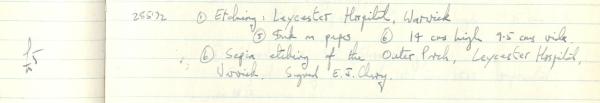 25592 ① Etching: Leycester Hospital, Warwick
⑤ Ink on paper ⑥ 14 cms high 9.5 cms wide.
⑥ Sepia etching of the Outer Porch, Leycester Hospital,
Warwick. Signed E.J.